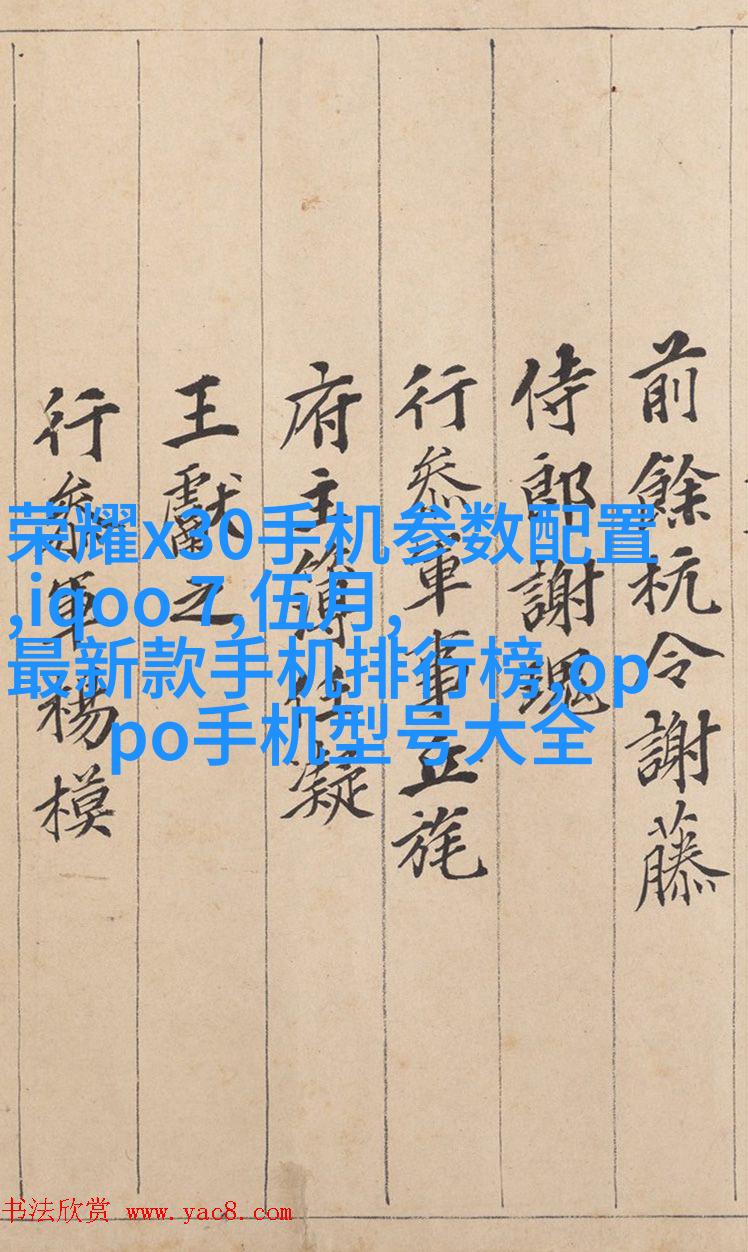 前餘杭令謝藤
侍郎謝瑰
行叅軍事丘旄
府主簿任凝
王獻之
行叅軍楊模
荣耀x30手机参数配置
,iqoo 7,伍月,
最新款手机排行榜,op
po手机型号大全
书法欣赏 www.yac8.com